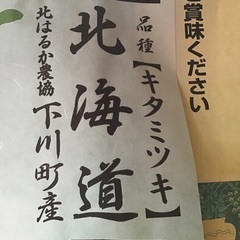 賞味ください
品種【キタミツキ】
北海道
下川町産
北はるか農協